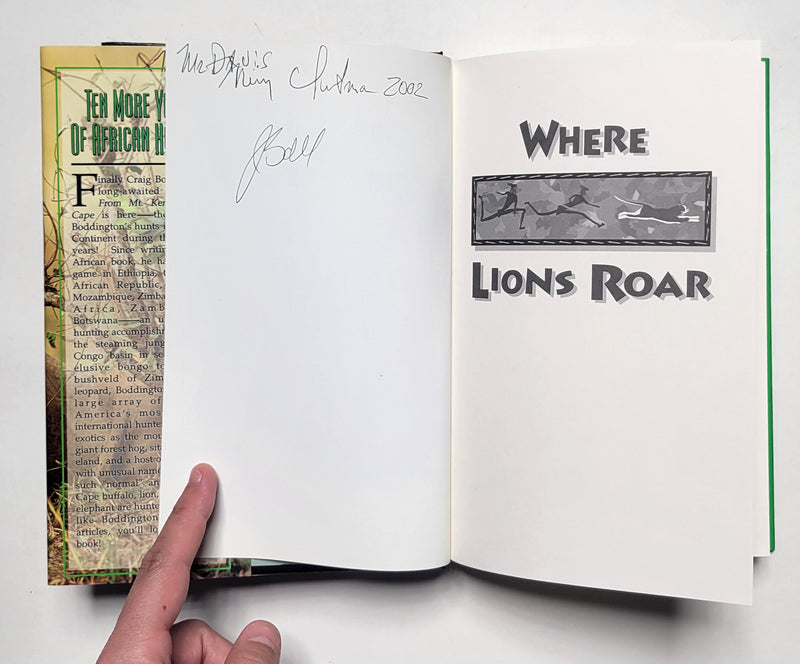 TEN MORE Y
OF AFRICAN H
Finally Craig Bo
long-awaited
From Mt. Ken
Cape is here—the
Boddington's hunts i
Continent during th
years! Since writi
African book, he ha
game in Ethiopia,
African Republic,
Mozambique, Zimba
Africa, Zamb
Botswana—an u
hunting accomplishm
the steaming jung
Congo basin in sea
elusive bongo to
bushveld of Zim
leopard, Boddington
large array of
America's mos
international hunter
exotics as the mou
giant forest hog, sita
eland, and a host o
with unusual name
such "normal" an
Cape buffalo, lion,
elephant are hunte
like Boddington
articles, you'll lo
book!
Mr. Davis
Merry Christmas 2002
WHERE
LIONS ROAR